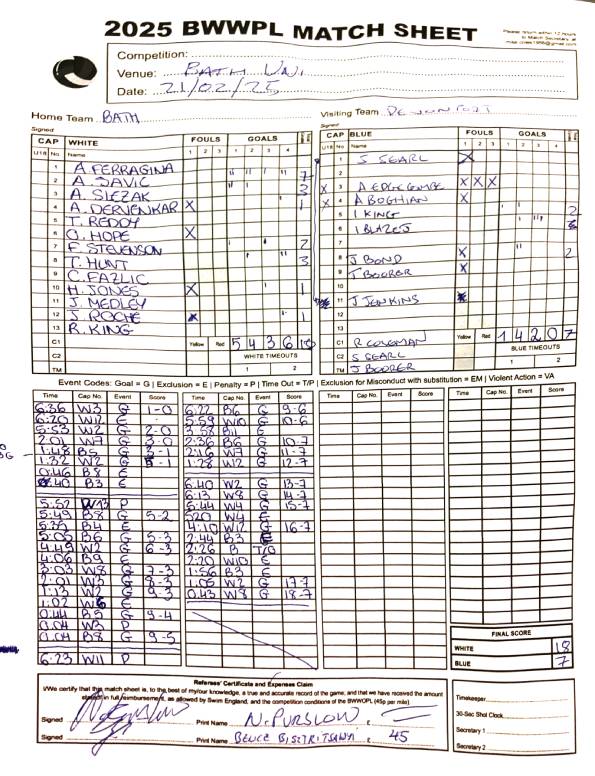 2025 BWWPL MATCH SHEET
Please return within 12 hours
to Match Secretary at
Competition:
Venue: BATH UNI
Date: 21/02/25
Home Team BATH
Visiting Team
Signed
CAP WHITE FOULS GOALS
U18 No. Name 1 2 3 1 2 3 4
1 A FERRAGINA
2 A. SAVIC 7
3 A. SLEZAK 3
4 A. DERVENKAR X 1
5 T. REDDY
6 O. HOPE X
7 F. STEVENSON 2
8 T. HUNT 3
9 C. FAZLIC
10 H. JONES X 1
11 J. MEDLEY
12 J. ROCHE 1
13 R. KING
C1 Yellow Red 5 4 3 6 18
C2 WHITE TIMEOUTS
TM 1 2
Signed
CAP BLUE FOULS GOALS
U18 No. Name 1 2 3 1 2 3 4
1 S SEARL X
2
X 3 A EDGCOMBE X X X
X 4 A BOGHIAN X
5 I KING 2
6 I BLAZEJ
7
8 J BOND X 2
9 T BOORER X
10
11 J JENKINS
12
13
C1 R COLEMAN Yellow Red 1 4 2 0 7
C2 S SEARL BLUE TIMEOUTS
TM J BOORER 1 2
Event Codes: Goal = G | Exclusion = E | Penalty = P | Time Out = T/P | Exclusion for Misconduct with substitution = EM | Violent Action = VA
Time Cap No. Event Score
6:36 W3 G 1-0
6:20 W12 E
5:53 W2 G 2-0
2:01 W7 G 3-0
1:48 B5 G 3-1
1:32 W2 G 5-1
0:46 B8 E
0:40 B3 E
5:52 W13 P
5:49 B8 G 5-2
5:35 B4 E
5:05 B6 G 5-3
4:49 W2 G 6-3
4:06 B9 E
3:03 W8 G 7-3
2:01 W3 G 8-3
1:13 W2 G 9-3
1:02 W6 E
0:44 B5 G 9-4
0:04 W3 P
0:04 B8 G 9-5
6:23 W11 P
Time Cap No. Event Score
6:22 B6 G 9-6
5:59 W10 G 10-6
3:58 B11 E
2:36 B6 G 10-7
2:16 W7 G 11-7
1:28 W12 G 12-7
6:40 W2 G 13-7
6:13 W8 G 14-7
5:44 W4 G 15-7
5:20 W4 E
4:10 W12 G 16-7
2:44 B3 E
2:26 B T/O
2:20 W10 E
1:56 B3 E
1:05 W2 G 17-7
0:43 W8 G 18-7
Time Cap No. Event Score
Time Cap No. Event Score
FINAL SCORE
WHITE 18
BLUE 7
Referees' Certificate and Expenses Claim
I/We certify that this match sheet is, to the best of my/our knowledge, a true and accurate record of the game; and that we have received the amount
stated in full reimbursement, as allowed by Swim England, and the competition conditions of the BWWPL (45p per mile).
Signed Print Name N. PURSLOW £
Signed Print Name £ 45
Timekeeper
30-Sec Shot Clock
Secretary 1
Secretary 2